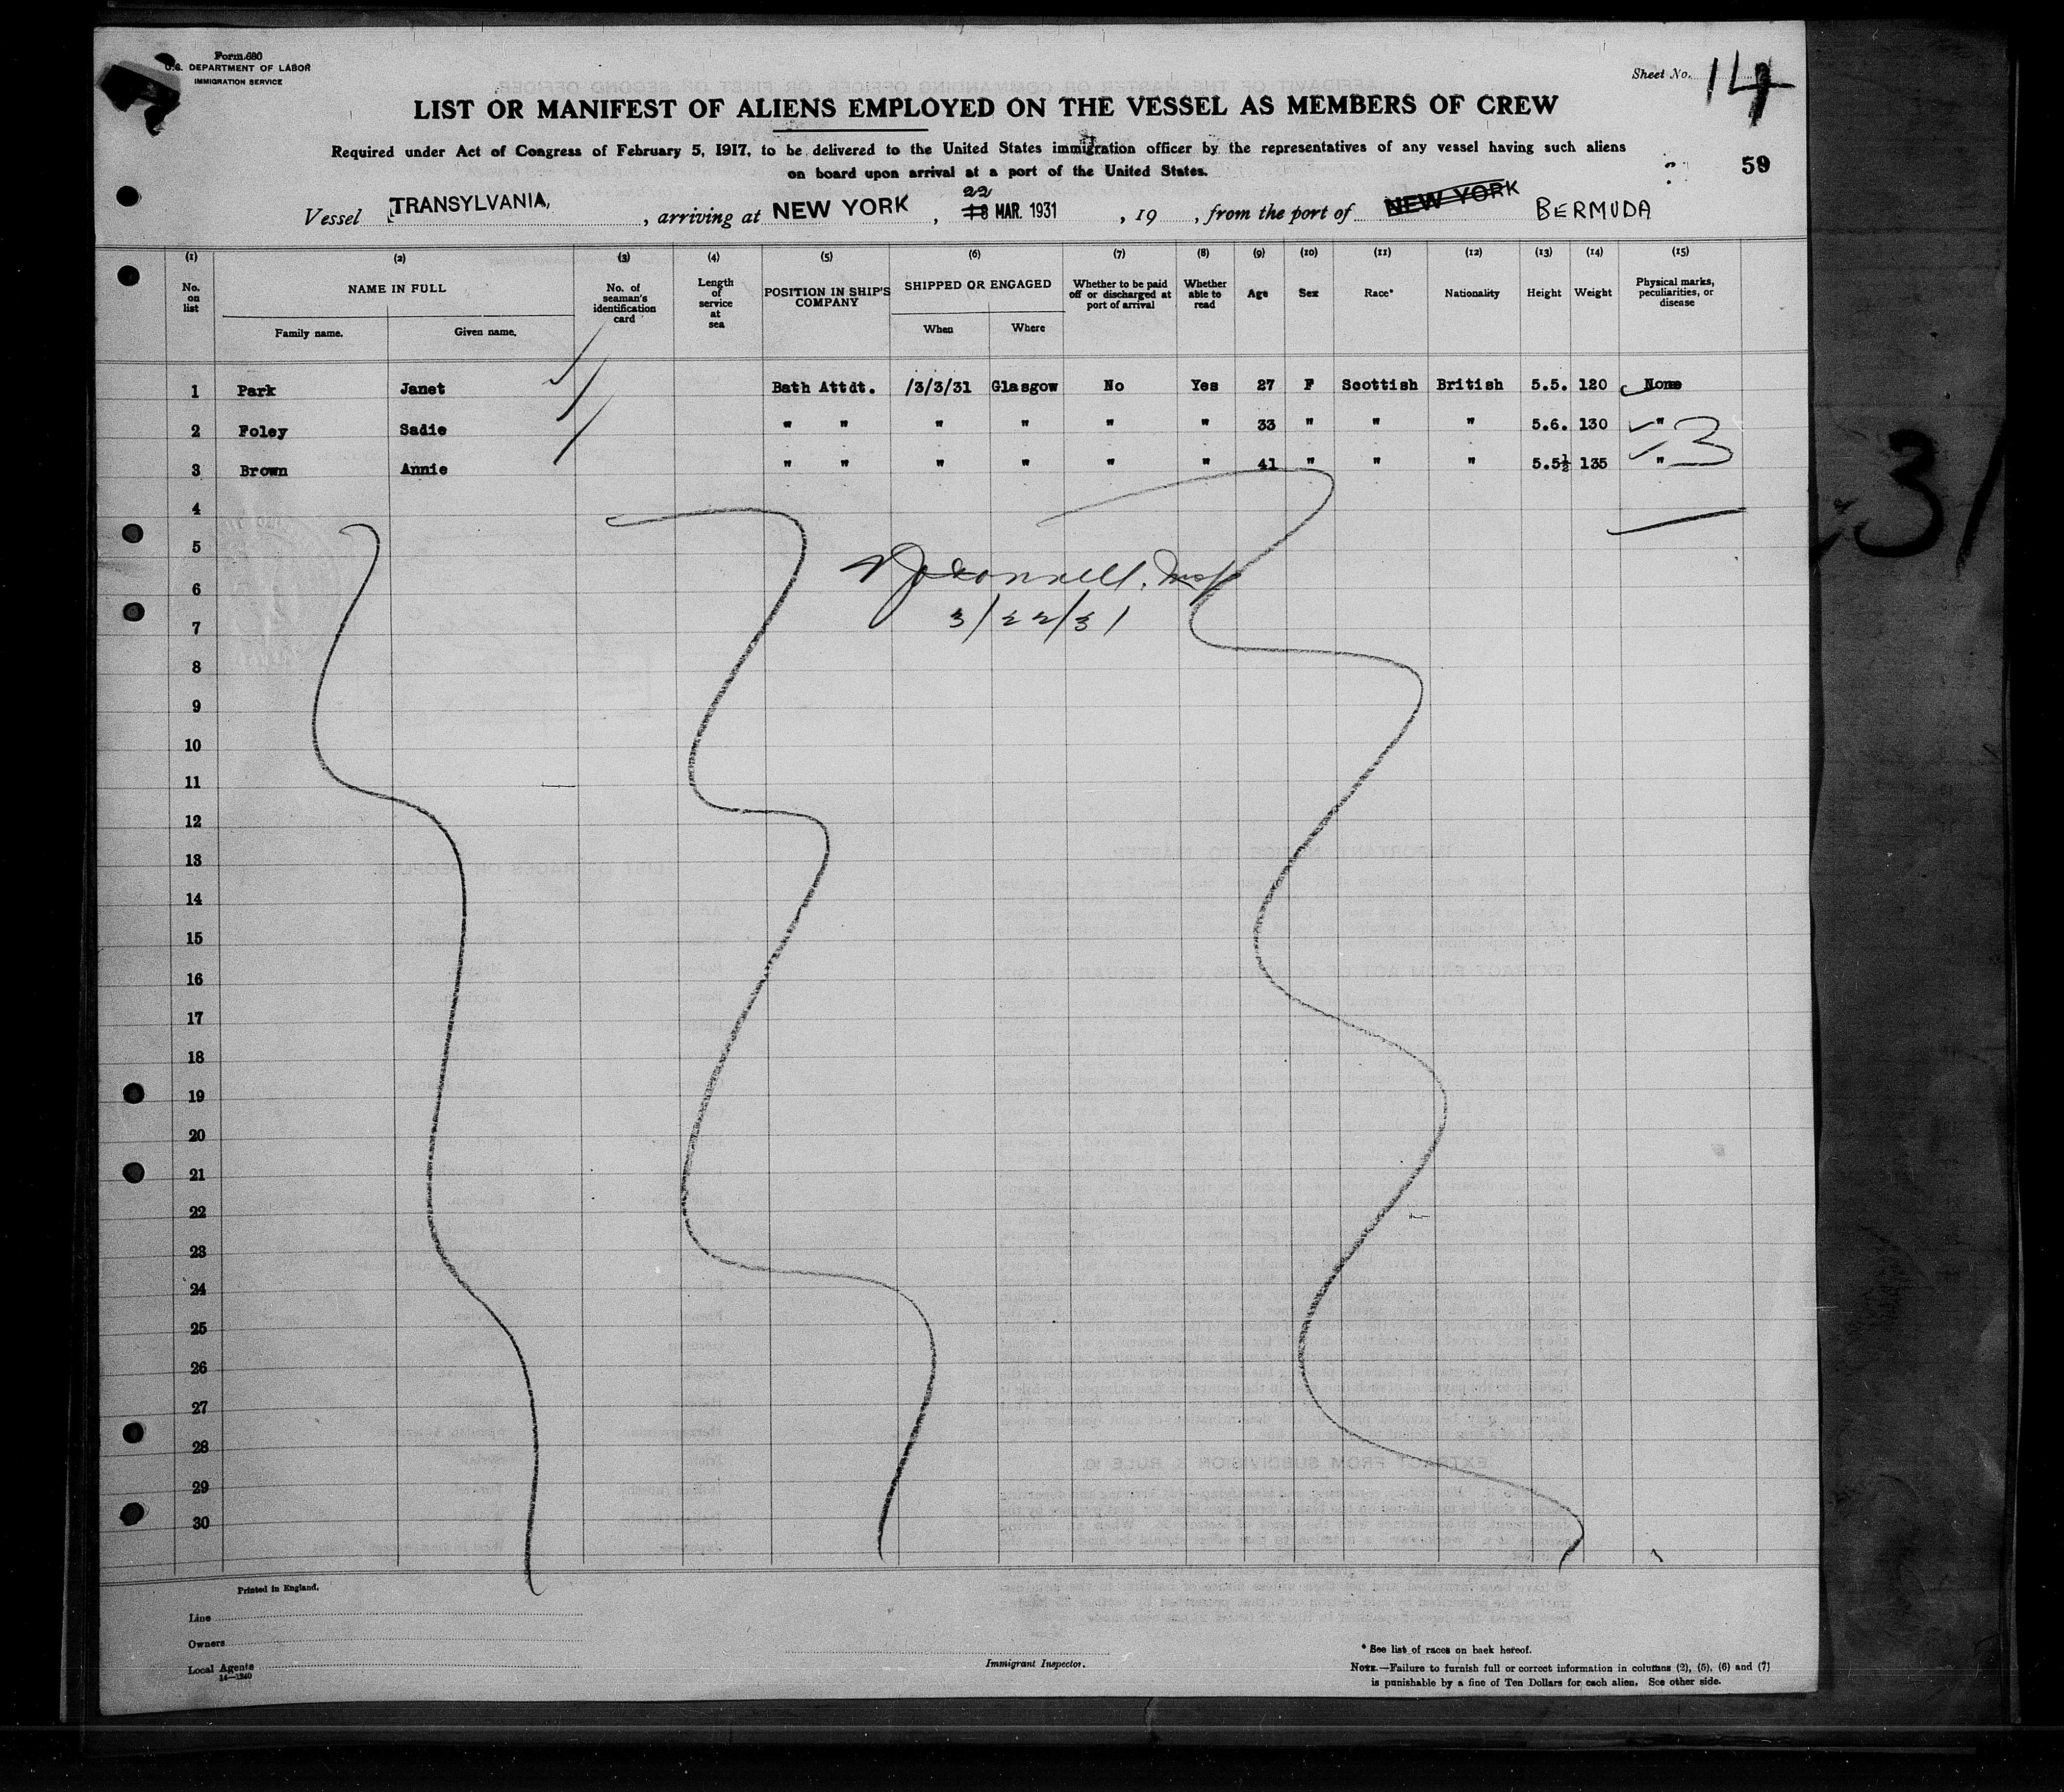 Form 680
U.S. DEPARTMENT OF LABOR
IMMIGRATION SERVICE
Sheet No. 14
LIST OR MANIFEST OF ALIENS EMPLOYED ON THE VESSEL AS MEMBERS OF CREW
Required under Act of Congress of February 5, 1917, to be delivered to the United States immigration officer by the representatives of any vessel having such aliens
on board upon arrival at a port of the United States.
59
22
Vessel TRANSYLVANIA, , arriving at NEW YORK , 18 MAR. 1931 , 19 , from the port of NEW YORK BERMUDA
(1) (2) (3) (4) (5) (6) (7) (8) (9) (10) (11) (12) (13) (14) (15)
No. on list NAME IN FULL No. of seaman's identification card Length of service at sea POSITION IN SHIP'S COMPANY SHIPPED OR ENGAGED Whether to be paid off or discharged at port of arrival Whether able to read Age Sex Race* Nationality Height Weight Physical marks, peculiarities, or disease
Family name. Given name. When Where
1 Park Janet Bath Attdt. /3/3/31 Glasgow No Yes 27 F Scottish British 5.5. 120 None
2 Foley Sadie " " " " " " 33 " " " 5.6. 130 "
3 Brown Annie " " " " " " 41 " " " 5.5½ 135 "
3
31
4
5
6
7 3/22/31
8
9
10
11
12
13
14
15
16
17
18
19
20
21
22
23
24
25
26
27
28
29
30
Printed in England.
Line
Owners
Local Agents
14—1240
Immigrant Inspector.
* See list of races on back hereof.
NOTE.—Failure to furnish full or correct information in columns (2), (5), (6) and (7)
is punishable by a fine of Ten Dollars for each alien. See other side.